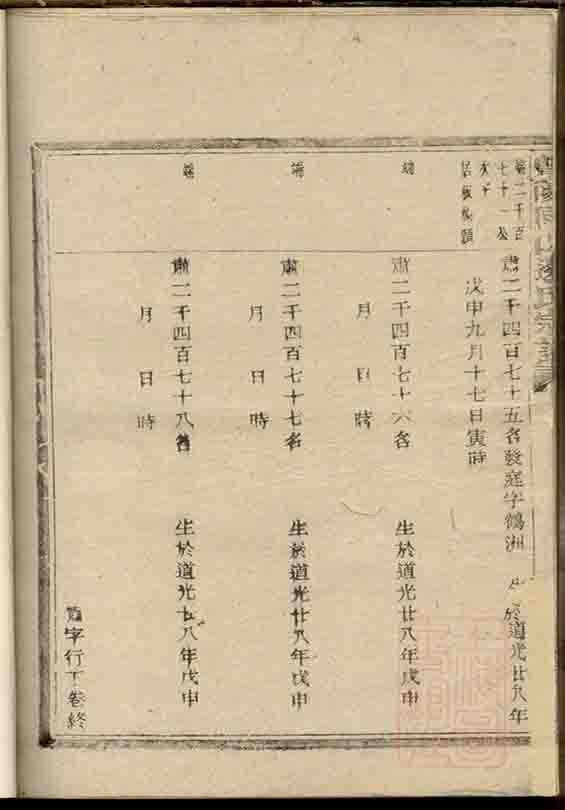 端二千百
七十一公
肅二千四百七十五名發庭字鶴洲 生於道光廿八年
戊申九月十七日寅時
端
肅二千四百七十六名 生於道光廿八年戊申
月 日 時
端
肅二千四百七十七名 生於道光廿八年戊申
月 日 時
端
肅二千四百七十八名 生於道光廿八年戊申
月 日 時
肅字行下卷終